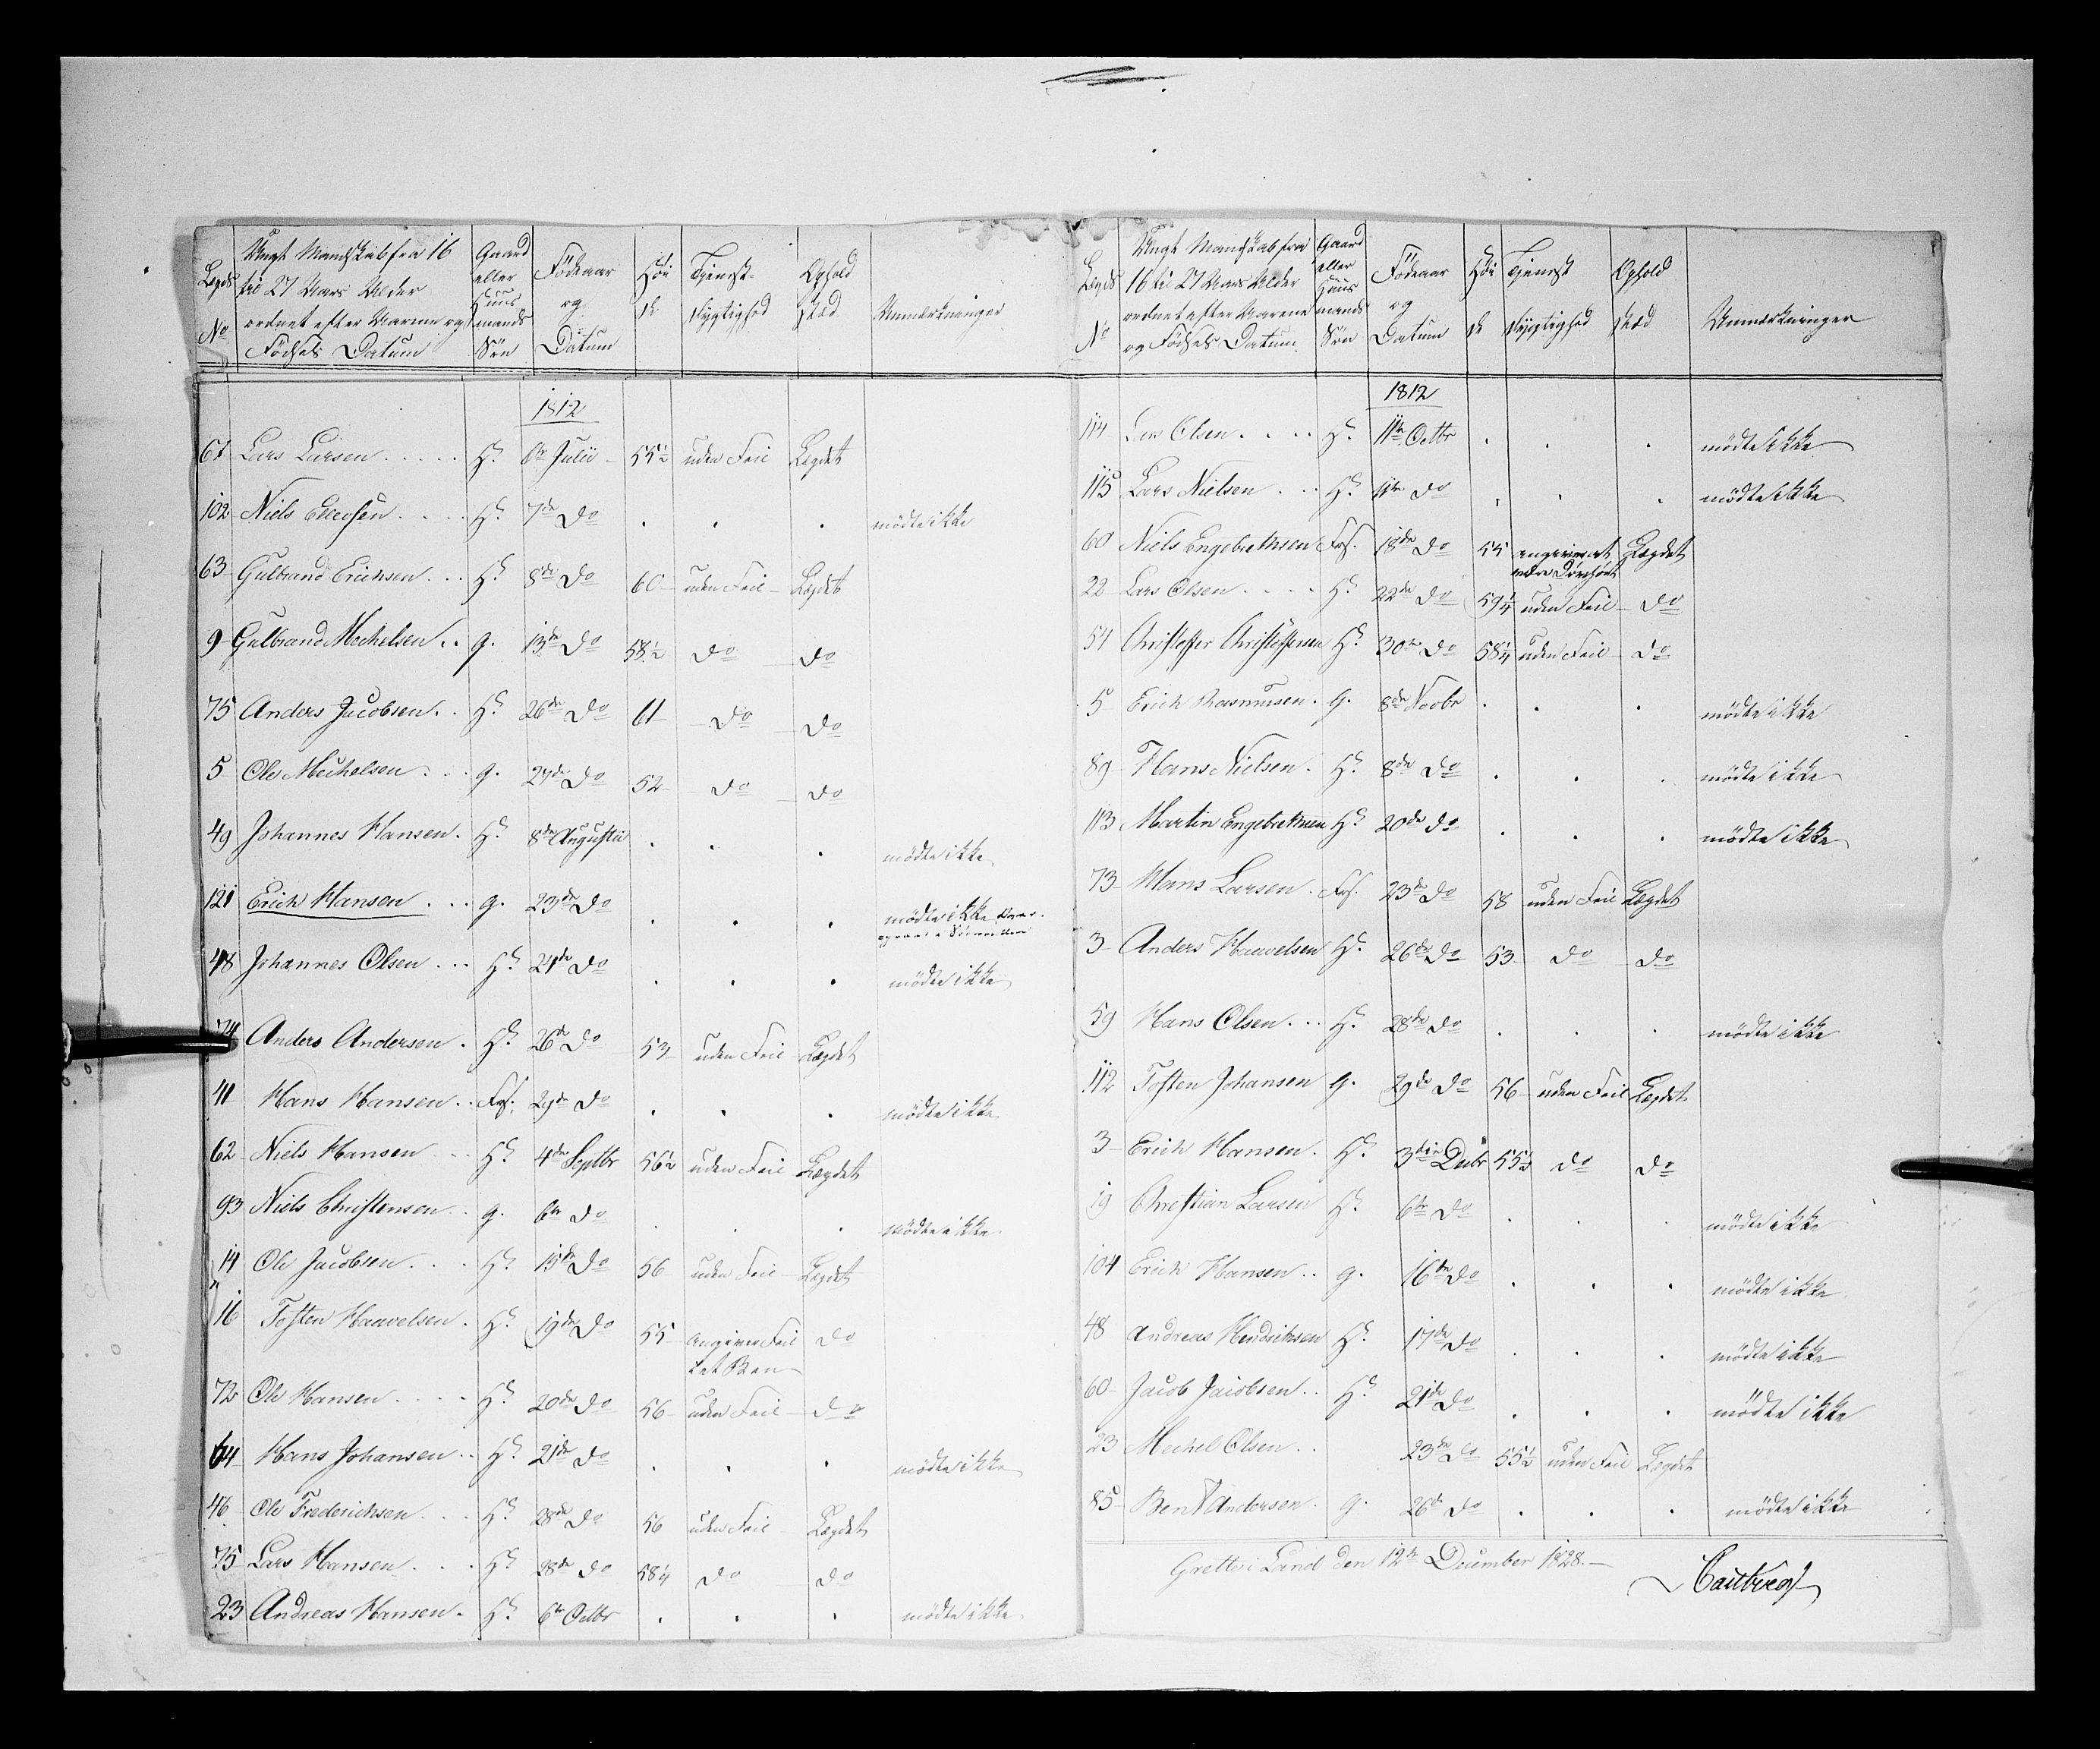 Lægds No | Ungt Mandskab fra 16 til 27 Aars Alder ordnet efter Aarene og Födsels Datum | Gaard eller Huus mands Sön | Födeaar og Datum | Höi de | Tjenest Dygtighed | Ophold sted | Anmærkninger
1812
67 Lars Larsen . . . . . H. 6te Julii 55½ uden Feil Lægdet
102 Niels . . . . H. 7de do . . . mödte ikke
63 Gulbrand Erichsen . . . H. 8de do 60 uden Feil Lægdet
9 Gulbrand Mechelsen . . g. 13de do 58½ do do
75 Anders Jacobsen . . H. 26de do 61 do do
5 Ole Mechelsen . . . g. 27de do 52 do do
49 Johannes Hansen . H. 8de Augustii . . . mödte ikke
121 Erich Hansen . . . g. 23de do . . . mödte ikke
48 Johannes Olsen . . . H. 24de do . . . mödte ikke
74 Anders Andersen . H. 26de do 53 uden Feil Lægdet
41 Hans Hansen . . Frs. 29de do . . . mödte ikke
62 Niels Hansen . . . H. 4de Septbr 56½ uden Feil Lægdet
93 Niels Christensen . . g. 6te do . . . mödte ikke
14 Ole Jacobsen . . . H. 15de do 56 uden Feil Lægdet
16 Tosten Haavelsen . H. 19de do 55 angiver Feil i et Ben do
72 Ole Hansen . . . . H. 20de do 56 uden Feil do
64 Hans Johansen . . H. 21de do . . . mödte ikke
46 Ole Frederichsen . . . H. 28de do 56 uden Feil Lægdet
75 Lars Hansen . . . H. 28de do 58¼ do do
23 Andreas Hansen . H. 6te Octbr . . . mödte ikke
Lægds No | Ungt Mandskab fra 16 til 27 Aars Alder ordnet efter Aarene og Födsels Datum | Gaard eller Huus mands Sön | Födeaar og Datum | Höi de | Tjenest Dygtighed | Ophold sted | Anmærkninger
1812
114 Olsen . . . . H. 11te Octbr . . . mödte ikke
115 Lars Nielsen . . . H. 11te do . . . mödte ikke
60 Niels Engebrethsen Frs. 18de do 55 angiver at være Lægdet
22 Lars Olsen . . . . H. 22de do 59¼ uden Feil do
54 Christoffer Christoffersen H. 30te do 58¼ uden Feil do
5 Erich Rasmusen . g. 8de Novbr . . . mödte ikke
89 Hans Nielsen . H. 8de do . . . mödte ikke
113 Martin Engebrethsen H. 20de do . . . mödte ikke
73 Hans Larsen . Frs. 23de do 58 uden Feil Lægdet
3 Anders Haavelsen H. 26de do 53 do do
59 Hans Olsen . . . H. 28de do . . . mödte ikke
112 Tosten Johansen g. 29de do 56 uden Feil Lægdet
3 Erich Hansen . H. 3die Decbr 55½ do do
19 Christian Larsen H. 6te do . . . mödte ikke
104 Erich Hansen . . g. 16de do . . . mödte ikke
48 Andreas Hendrichsen H. 17de do . . . mödte ikke
60 Jacob Jacobsen . . H. 21de do . . . mödte ikke
23 Mechel Olsen . . 23de do 55½ uden Feil Lægdet
85 Bent Andersen . g. 26de do . . . mödte ikke
Grette i Land den 12te December 1828.